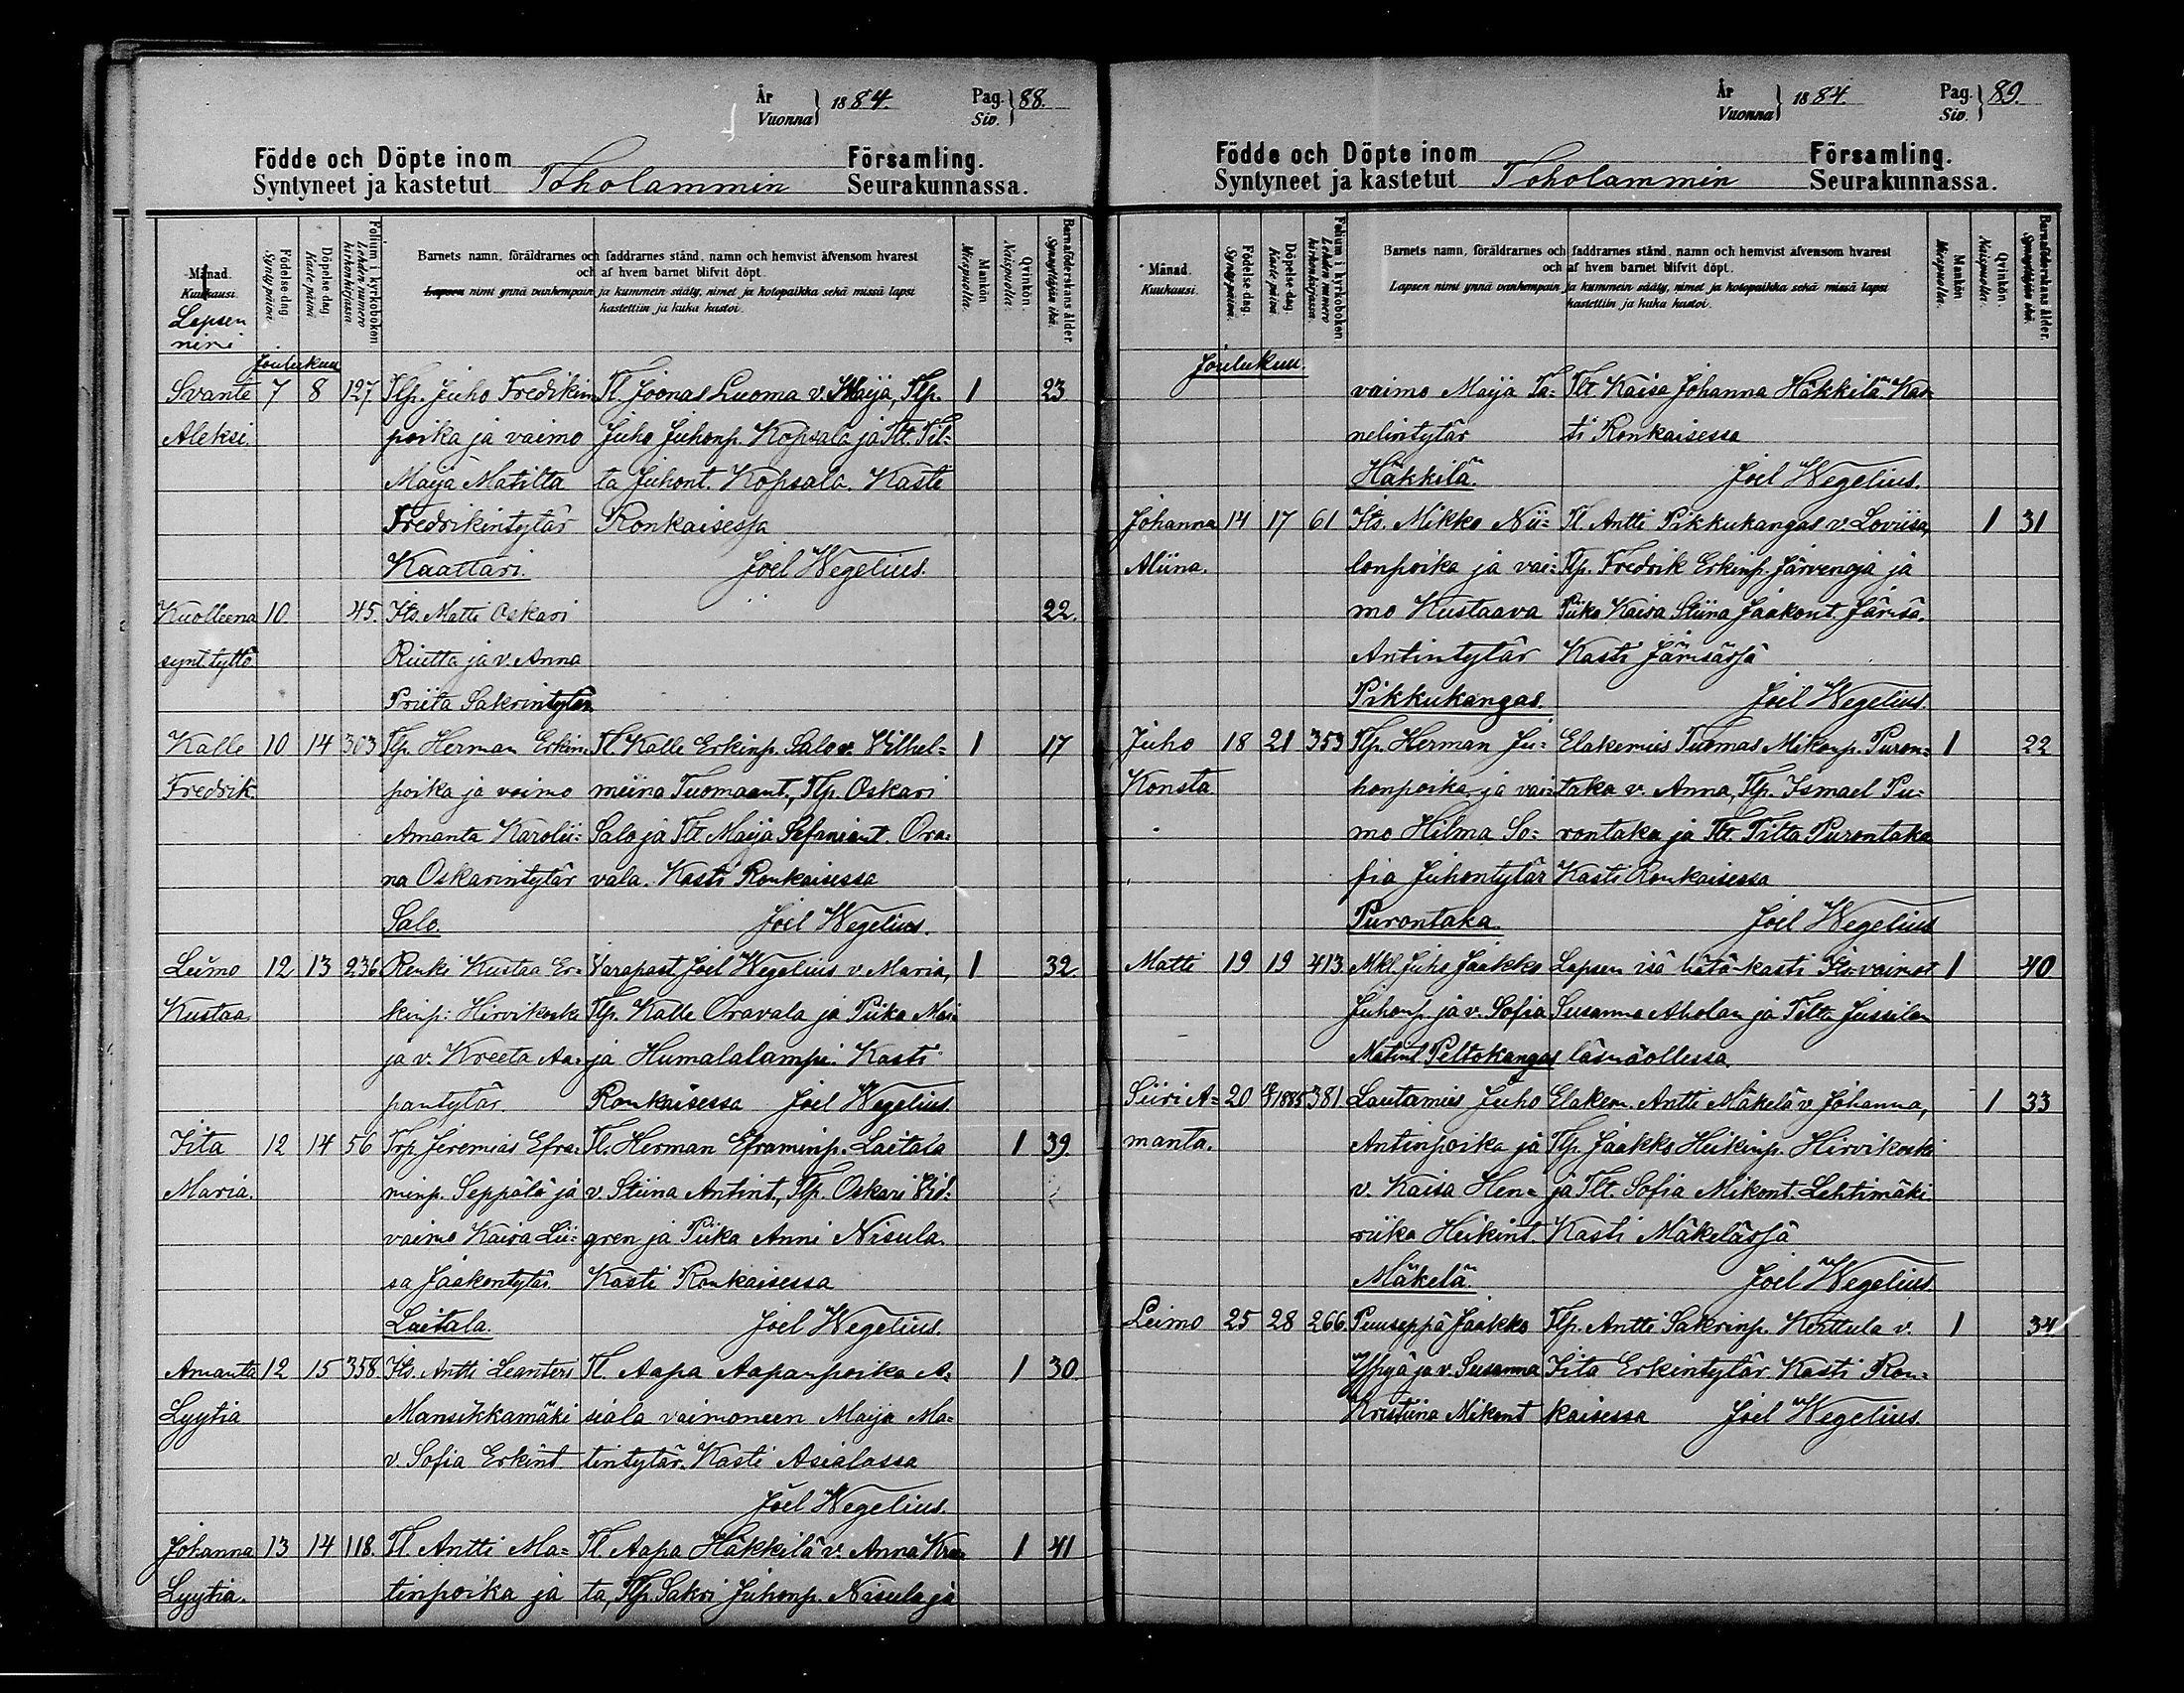 År
Vuonna } 1884. Pag.
Siv. } 88.
Födde och Döpte inom Församling.
Syntyneet ja kastetut Toholammin Seurakunnassa.
Månad. Kuukausi. Lapsen nimi
Födelse-dag. Syntypäivä.
Döpelse-dag. Kaste päivä.
Folium i kyrkoboken Lehden numero kirkonkirjassa
Barnets namn, föräldrarnes och faddrarnes stånd, namn och hemvist äfvensom hvarest
och af hvem barnet blifvit döpt.
Lapsen nimi ynnä vanhempain ja kummein sääty, nimet ja kotopaikka sekä missä lapsi
kastettiin ja kuka kastoi.
Mankön. Miespuolta.
Qvinkön. Naispuolta.
Barnaföderskans ålder. Synnyttäjän ikä.
Joulukuu
Svante 7 8 127 Tlp. Juho Fredikin Tl. Joonas Luoma v. Maija, Tlp. 1 23
Aleksi. poika ja vaimo Juho Juhonp. Kopsala ja Tlt. Til-
Maija Matilta ta Juhont. Kopsala. Kasti
Fredrikintytär Ronkaisessa
Kaattari. Joel Wegelius.
Kuolleena 10 45. Its. Matti Oskari 22.
synt. tyttö Riutta ja v. Anna
Priita Sakrintytär
Kalle 10 14 303 Tlp. Herman Erkin Tl. Kalle Erkinp. Salo v. Vilhel- 1 17
Fredrik. poika ja vaimo miina Tuomaant., Tlp. Oskari
Amanta Karolii- Salo ja Tlt. Maija Sefaniant. Ora-
na Oskarintytär vala. Kasti Ronkaisessa
Salo. Joel Wegelius.
Leimo 12 13 236 Renki Kustaa Er- Varapast. Joel Wegelius v. Maria, 1 32
Kustaa. kinp: Hirvikoski Tlp. Kalle Oravala ja Piika Mai-
ja v. Kreeta Aa- ja Humalalampi. Kasti
pantytär Ronkaisessa Joel Wegelius.
Iita 12 14 56 Trp. Jeremias Efra- Tl. Herman Eframinp. Laitala 1 39
Maria. minp. Seppälä ja v. Stiina Antint., Tlp. Oskari Vid-
vaimo Kaisa Lii- gren ja Piika Anni Nisula.
sa Jaakontytär. Kasti Ronkaisessa
Laitala. Joel Wegelius.
Amanta 12 15 358. Its. Antti Leanteri Tl. Aapa Aapanpoika A- 1 30.
Lyytia Mansikkamäki siala vaimoneen Maija Ma-
v. Sofia Erkint. tintytär. Kasti Asialassa
Joel Wegelius.
Johanna 13 14 118. Tl. Antti Ma- Tl. Aapa Häkkilä v. Anna Kree- 1 41
Lyytia. tinpoika ja ta, Tlp. Sakri Juhonp. Nisula ja
År
Vuonna } 1884. Pag.
Siv. } 89.
Födde och Döpte inom Församling.
Syntyneet ja kastetut Toholammin Seurakunnassa.
Månad. Kuukausi.
Födelse-dag. Syntypäivä.
Döpelse-dag. Kaste päivä.
Folium i kyrkoboken Lehden numero kirkonkirjassa.
Barnets namn, föräldrarnes och faddrarnes stånd, namn och hemvist äfvensom hvarest
och af hvem barnet blifvit döpt.
Lapsen nimi ynnä vanhempain ja kummein sääty, nimet ja kotopaikka sekä missä lapsi
kastettiin ja kuka kastoi.
Mankön. Miespuolta.
Qvinkön. Naispuolta.
Barnaföderskans ålder. Synnyttäjän ikä.
Joulukuu.
vaimo Maija Ta- Tlt. Kaisa Johanna Häkkilä. Kas-
nelintytär ti Ronkaisessa
Häkkilä. Joel Wegelius.
Johanna 14 17 61 Its. Mikko Nii- Tl. Antti Pikkukangas v. Loviisa, 1 31
Aliina. lonpoika ja vai- Tlp. Fredrik Erkinp. Järvenoja ja
mo Kustaava Piika Kaisa Stiina Jaakont. Jämsä.
Antintytär Kasti Jämsässä
Pikkukangas. Joel Wegelius.
Juho 18 21 353 Tlp. Herman Ju- Elakemies Tuomas Mikonp. Puron- 1 22
Konsta honpoika ja vai- taka v. Anna, Tlp. Ismael Pu-
mo Hilma So- rontaka ja Tlt. Tilta Purontaka
fia Juhontytär Kasti Ronkaisessa
Purontaka. Joel Wegelius
Matti 19 19 413. Mkl. Juho Jaakko Lapsen isä hätä-kasti Its-vaimot 1 40
Juhonp. ja v. Sofia Susanna Aholan ja Tilta Jussilan
Matint. Peltokangas läsnäollessa.
Siiri A- 20 1885 381. Lautamies Juho Elakem. Antti Mäkelä v. Johanna, 1 33
manta. Antinpoika ja Tlp. Jaakko Heikinp. Hirvikoski
v. Kaisa Hen- ja Tlt. Sofia Mikont. Lehtimäki
riika Heikint. Kasti Mäkelässä
Mäkelä. Joel Wegelius.
Leimo 25 28 266. Puuseppä Jaakko Tlp. Antti Sakrinp. Kerttula v. 1 34
Yppyä ja v. Susanna Iita Erkintytär. Kasti Ron-
Kristiina Mikont kaisessa Joel Wegelius.